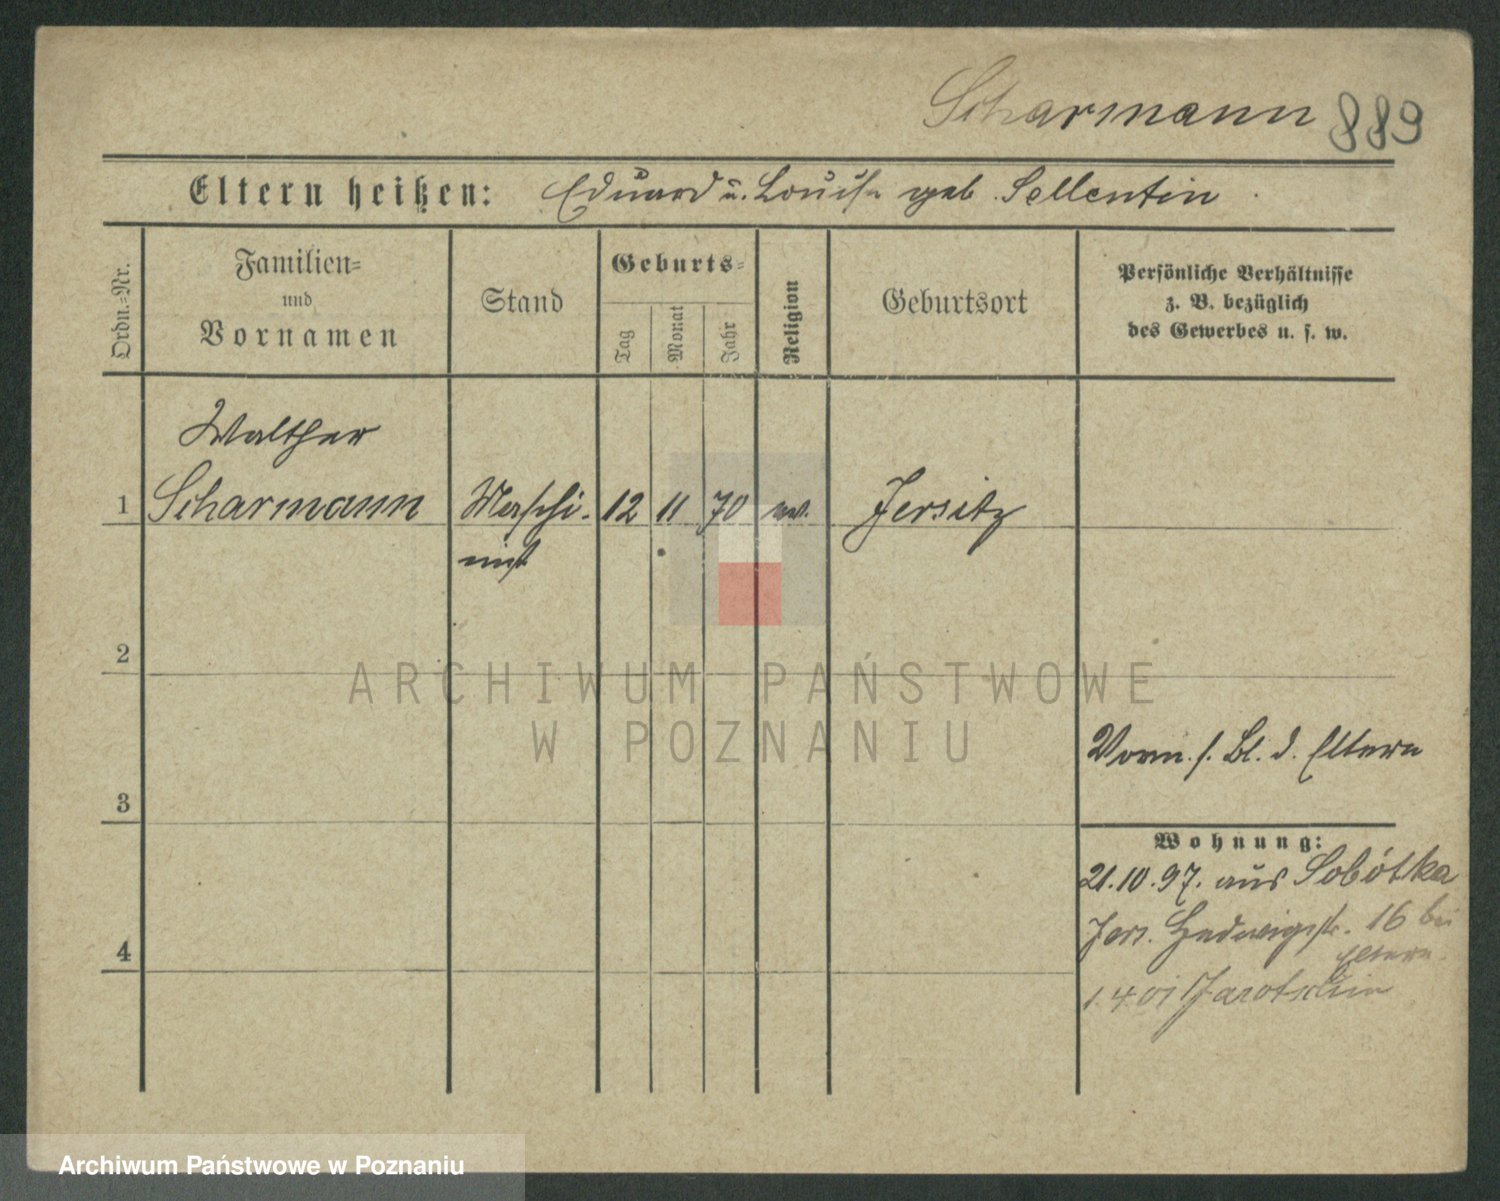 Scharmann 889
Eltern heißen: Eduard u. Louise geb. Sellentin
Ordn.=Nr.
Familien=
und
Vornamen
Stand
Geburts=
Tag
Monat
Jahr
Religion
Geburtsort
Persönliche Verhältnisse
z. B. bezüglich
des Gewerbes u. s. w.
Walther
1 Scharmann Maschi- 12 11 70 ev. Jersitz
nist
2
ARCHIWUM PAŃSTWOWE
W POZNANIU
Vorm. s. Bl. d. Eltern
3
Wohnung:
21.10.97. aus Sobótka
Jers. Hedwigstr. 16 bei
Eltern.
4
1.4.01 Jarotschin
Archiwum Państwowe w Poznaniu